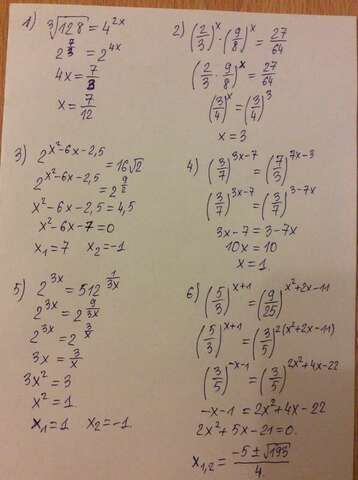 1) ∛128 = 4^{2x}
2^{7/3} = 2^{4x}
4x = 7/3
x = 7/12
2) (2/3)^x · (9/8)^x = 27/64
(2/3 · 9/8)^x = 27/64
(3/4)^x = (3/4)^3
x = 3
3) 2^{x²-6x-2,5} = 16√2
2^{x²-6x-2,5} = 2^{9/2}
x²-6x-2,5 = 4,5
x²-6x-7 = 0
x₁ = 7 x₂ = -1
4) (3/7)^{3x-7} = (7/3)^{7x-3}
(3/7)^{3x-7} = (3/7)^{3-7x}
3x-7 = 3-7x
10x = 10
x = 1.
5) 2^{3x} = 512^{1/3x}
2^{3x} = 2^{9/3x}
2^{3x} = 2^{3/x}
3x = 3/x
3x² = 3
x² = 1.
x₁ = 1 x₂ = -1.
6) (5/3)^{x+1} = (9/25)^{x²+2x-11}
(5/3)^{x+1} = (3/5)^{2(x²+2x-11)}
(3/5)^{-x-1} = (3/5)^{2x²+4x-22}
-x-1 = 2x²+4x-22
2x²+5x-21 = 0.
x₁,₂ = (-5 ± √193)/4.